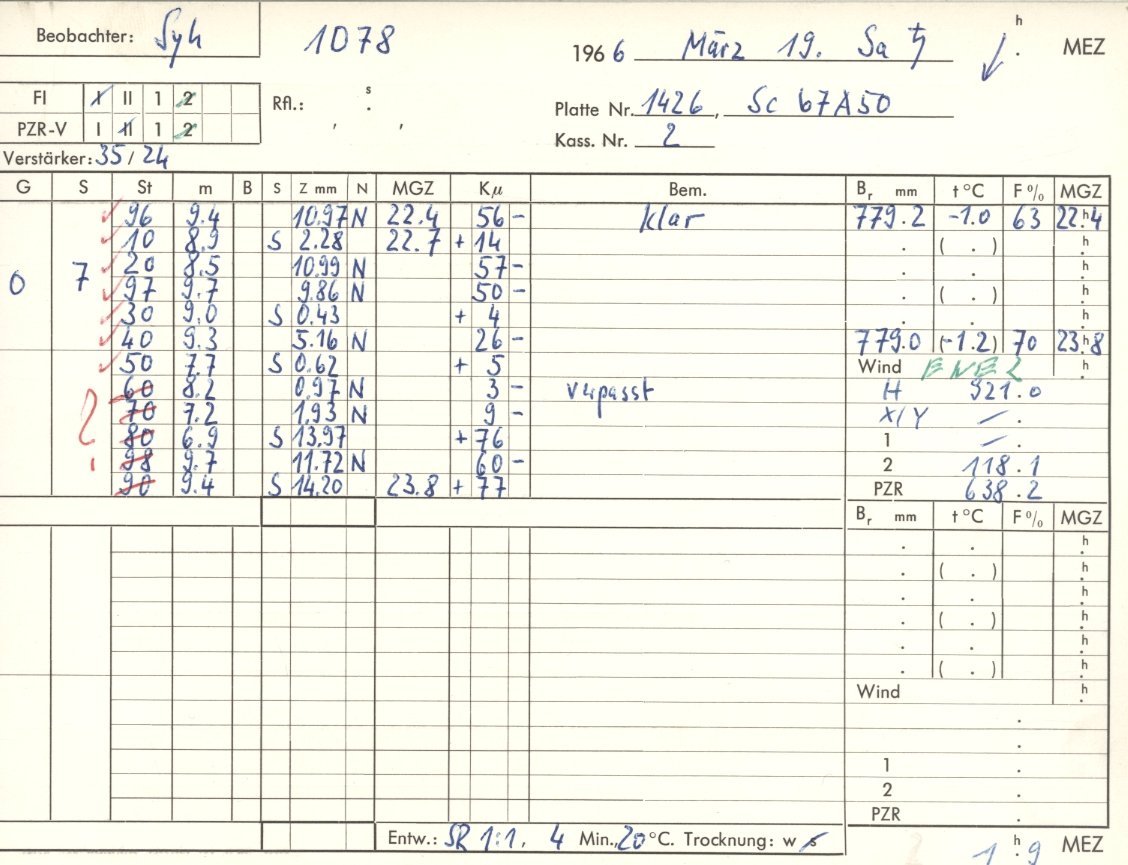 Beobachter: Syh 1078 1966 März 19. Sa ♄ h . MEZ
FI I II 1 2 Rfl.: s . Platte Nr. 1426, Sc 67A50
PZR-V I II 1 2 , , Kass. Nr. 2
Verstärker: 35/24
G S St m B S Z mm N MGZ Kμ Bem. Br mm t °C F % MGZ
96 9.4 10.97 N 22.4 56 - klar 779.2 -1.0 63 22.h4
10 8.9 S 2.28 22.7 + 14 . ( . ) h
20 8.5 10.99 N 57 - . . h
0 7 97 9.7 9.86 N 50 - . ( . ) h
30 9.0 S 0.43 + 4 . . h
40 9.3 5.16 N 26 - 779.0 (-1.2) 70 23.h8
50 7.7 S 0.62 + 5 Wind ENE 2 h
60 8.2 0.97 N 3 - verpasst H 921.0
70 7.2 1.93 N 9 - X/Y - .
80 6.9 S 13.97 + 76 1 - .
98 9.7 11.72 N 60 - 2 118.1
90 9.4 S 14.20 23.8 + 77 PZR 638.2
Br mm t °C F % MGZ
. . h
. ( . ) h
. . h
. ( . ) h
. . h
. ( . ) h
Wind h
.
.
1 .
2 .
PZR .
Entw.: SR 1:1, 4 Min., 20 °C. Trocknung: w s
1 h . 9 MEZ